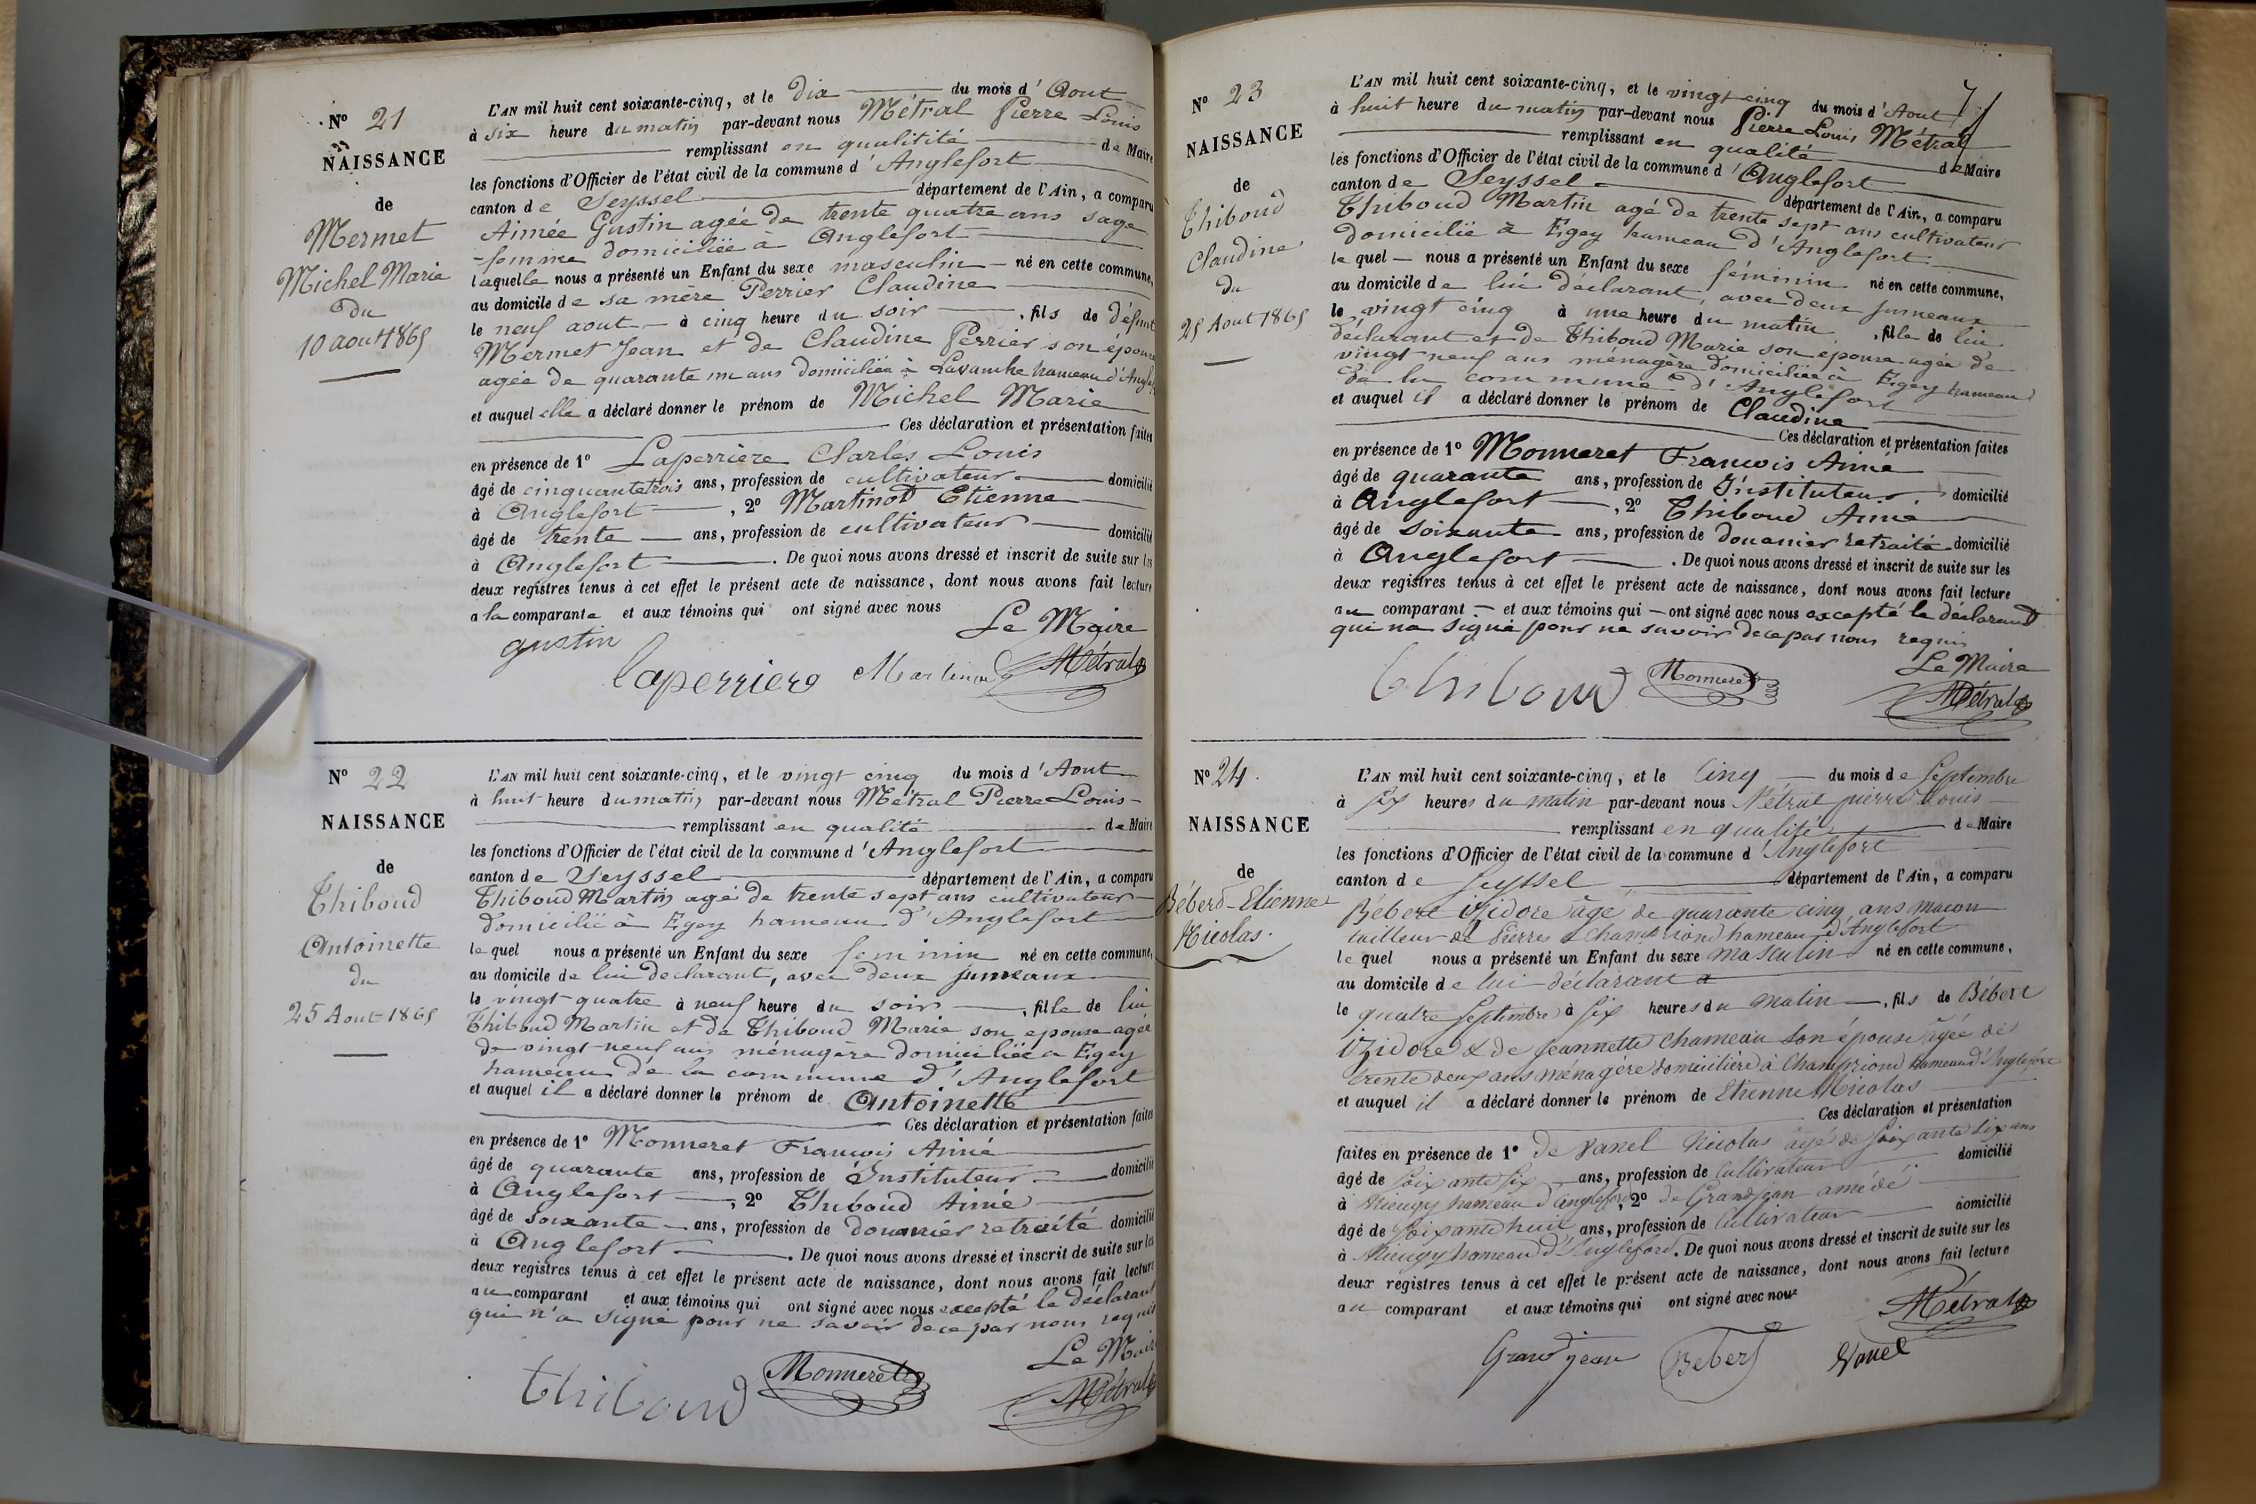 N° 21
NAISSANCE
de
Mermet
Michel Marie
du
10 aout 1865
L'AN mil huit cent soixante-cinq, et le dix du mois d'Aout
à six heure du matin par-devant nous Métral Pierre Louis
remplissant en qualitité de Maire
les fonctions d'Officier de l'état civil de la commune d'Anglefort
canton de Seyssel département de l'Ain, a comparu
Aimée Gustin agée de trente quatre ans sage
-femme domiciliée à Anglefort
laquelle nous a présenté un Enfant du sexe masculin né en cette commune,
au domicile de sa mère Perrier Claudine
le neuf aout à cinq heure du soir, fils de défunt
Mermet Jean et de Claudine Perrier son épouse
agée de quarante un ans domiciliée à Lavanche hameau d'Angle
et auquel elle a déclaré donner le prénom de Michel Marie
Ces déclaration et présentation faites
en présence de 1° Laperrière Charles Louis
âgé de cinquante trois ans, profession de cultivateur domicilié
à Anglefort, 2° Martinod Etienne
âgé de trente ans, profession de cultivateur domicilié
à Anglefort. De quoi nous avons dressé et inscrit de suite sur les
deux registres tenus à cet effet le présent acte de naissance, dont nous avons fait lecture
a la comparante et aux témoins qui ont signé avec nous
Le Maire
gustin
laperriere Martinod Métral
N° 22
NAISSANCE
de
Thiboud
Antoinette
du
25 Aout 1865
L'AN mil huit cent soixante-cinq, et le vingt cinq du mois d'Aout
à huit heure du matin par-devant nous Métral Pierre Louis
remplissant en qualité de Maire
les fonctions d'Officier de l'état civil de la commune d'Anglefort
canton de Seyssel département de l'Ain, a comparu
Thiboud Martin agé de trente sept ans cultivateur
domicilié à Egey hameau d'Anglefort
le quel nous a présenté un Enfant du sexe feminin né en cette commune,
au domicile de lui declarant, avec deux jumeaux
le vingt-quatre à neuf heure du soir, fille de lui
Thiboud Martin et de Thiboud Marie son epouse agée
de vingt-neuf ans ménagère domiciliée a Egey
hameau de la commune d'Anglefort
et auquel il a déclaré donner le prénom de Antoinette
Ces déclaration et présentation faites
en présence de 1° Monneret François Aimé
âgé de quarante ans, profession de Instituteur domicilié
à Anglefort, 2° Thiboud Aimé
âgé de soixante ans, profession de douanier retraité domicilié
à Anglefort. De quoi nous avons dressé et inscrit de suite sur les
deux registres tenus à cet effet le présent acte de naissance, dont nous avons fait lecture
au comparant et aux témoins qui ont signé avec nous excepté le déclarant
qui n'a signé pour ne savoir de ce par nous requis
Le Maire
Thiboud Monneret Métral
N° 23
NAISSANCE
de
Thiboud
Claudine
du
25 Aout 1865
L'AN mil huit cent soixante-cinq, et le vingt cinq du mois d'Aout
à huit heure du matin par-devant nous Pierre Louis Métral
remplissant en qualité de Maire
les fonctions d'Officier de l'état civil de la commune d'Anglefort
canton de Seyssel département de l'Ain, a comparu
Thiboud Martin agé de trente sept ans cultivateur
domicilié à Egey hameau d'Anglefort
le quel nous a présenté un Enfant du sexe féminin né en cette commune,
au domicile de lui déclarant, avec deux jumeaux
le vingt cinq à une heure du matin, fille de lui
déclarant et de Thiboud Marie son epouse agée de
vingt neuf ans ménagère domiciliée à Egey hameau
de la commune d'Anglefort
et auquel il a déclaré donner le prénom de Claudine
Ces déclaration et présentation faites
en présence de 1° Monneret François Aimé
âgé de quarante ans, profession de Instituteur domicilié
à Anglefort, 2° Thiboud Aimé
âgé de soixante ans, profession de douanier retraité domicilié
à Anglefort. De quoi nous avons dressé et inscrit de suite sur les
deux registres tenus à cet effet le présent acte de naissance, dont nous avons fait lecture
au comparant et aux témoins qui ont signé avec nous excepté le déclarant
qui na signé pour ne savoir de ce par nous requis
Le Maire
Thiboud Monneret Métral
N° 24
NAISSANCE
de
Bébert Etienne
Nicolas
L'AN mil huit cent soixante-cinq, et le cinq du mois de Septembre
à six heures du matin par-devant nous Métral pierre Louis
remplissant en qualité de Maire
les fonctions d'Officier de l'état civil de la commune d'Anglefort
canton de Seyssel département de l'Ain, a comparu
Bébert izidore âgé de quarante cinq ans macon
tailleur de Pierres à Champriond hameau d'Anglefort
le quel nous a présenté un Enfant du sexe masculin né en cette commune,
au domicile de lui déclarant
le quatre Septembre à six heures du matin, fils de Bébert
izidore & de Jeannette Chameau son épouse âgée de
trente deux ans ménagère domicilière à Champriond hameau d'Anglefort
et auquel il a déclaré donner le prénom de Etienne Nicolas
Ces déclaration et présentation
faites en présence de 1° de Vanel Nicolas âgé de soixante six ans
âgé de soixante six ans, profession de Cultivateur domicilié
à hameau d'anglefort, 2° de Grandjean amédé
âgé de soixante huit ans, profession de Cultivateur domicilié
à hameau d'Anglefort. De quoi nous avons dressé et inscrit de suite sur les
deux registres tenus à cet effet le présent acte de naissance, dont nous avons fait lecture
au comparant et aux témoins qui ont signé avec nous
Métral
Grandjean Bebert Vanel